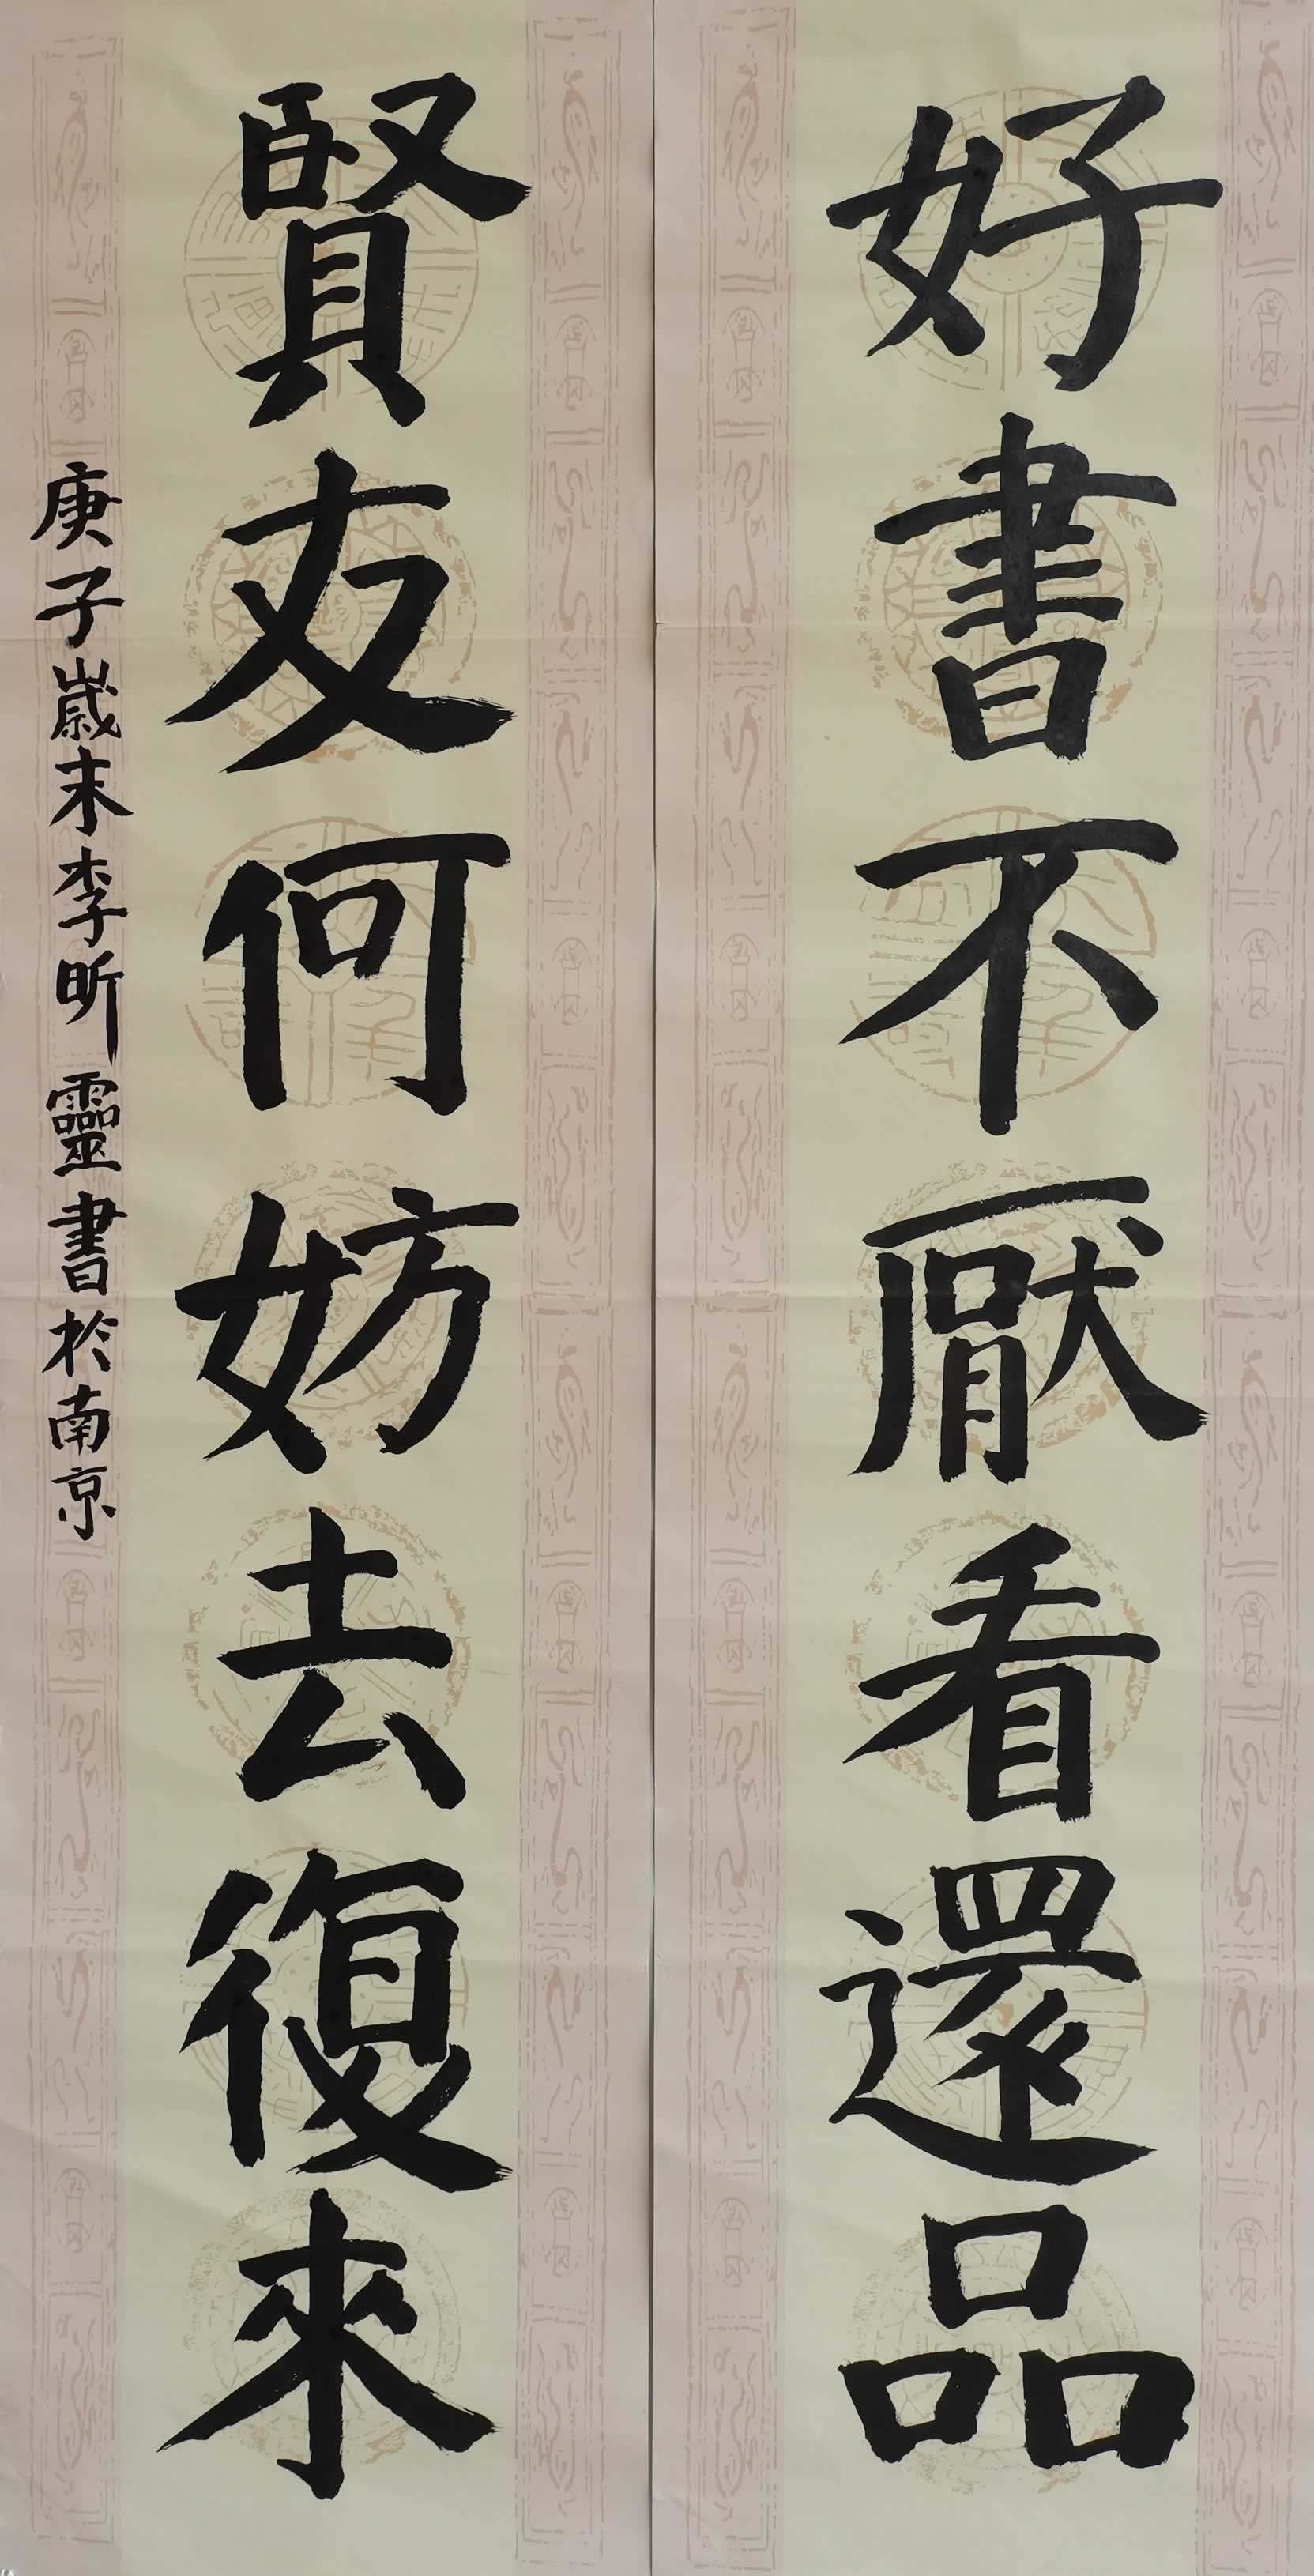 好書不厭看還品
賢友何妨去復來
庚子歲末李昕靈書於南京